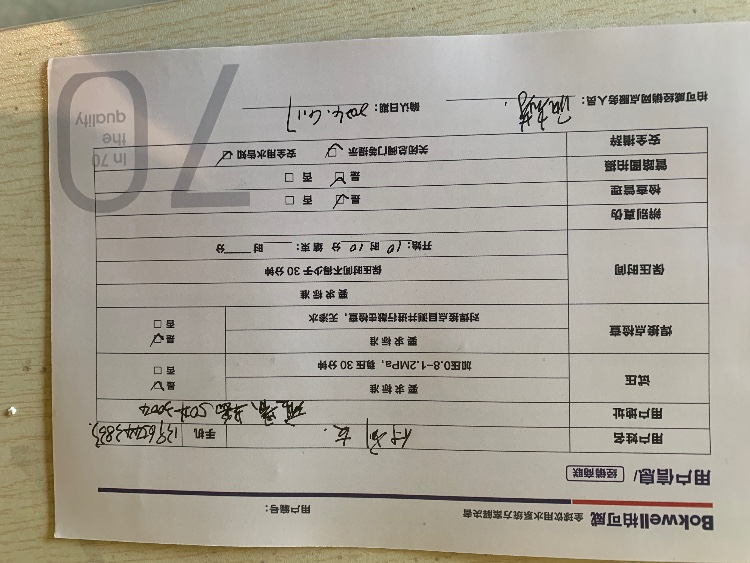 Bokwell柏可威 全球饮用水系统方案解决者 用户编号：
用户信息/ 经销商联
用户姓名 女 手机
用户地址
试压 要求标准 是
加压0.8-1.2MPa，稳压30分钟 否
焊接点检查 要求标准 是
对焊接点目测并进行敲击检查，无渗水 否
保压时间 要求标准
保压时间不得少于30分钟
开始：10时10分 结束：____时____分
辨别真伪
检查管理 是 否
管路图拍摄 是 否
安全措辞 关闭总阀门等提示 安全用水告知
柏可威经销网点服务人员： 确认日期：2024.6.17
In 70
the
quality
70